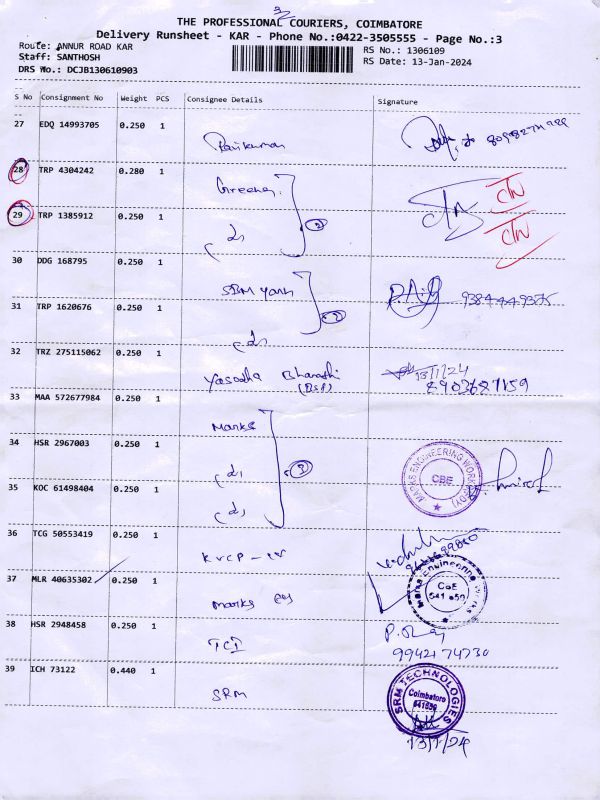 THE PROFESSIONAL COURIERS, COIMBATORE
Delivery Runsheet - KAR - Phone No.:0422-3505555 - Page No.:3
Route: ANNUR ROAD KAR
RS No.: 1306109
Staff: SANTHOSH
RS Date: 13-Jan-2024
DRS No.: DCJB130610903
S No Consignment No Weight PCS Consignee Details Signature
27 EDQ 14993705 0.250 1
28 TRP 4304242 0.280 1
29 TRP 1385912 0.250 1
30 DDG 168795 0.250 1
SBM yarn
31 TRP 1620676 0.250 1
32 TRZ 275115062 0.250 1
Yasodha Bharathi 13/1/24
(BSP) 8903687159
33 MAA 572677984 0.250 1
Marks
34 HSR 2967003 0.250 1
MARKS ENGINEERING WORKS
CBE
35 KOC 61498404 0.250 1
36 TCG 50553419 0.250 1
KVCP
37 MLR 40635302 0.250 1
Marks
Marks Engineering Works
CBE
641 659
38 HSR 2948458 0.250 1
TCI
9942174730
39 ICH 73122 0.440 1
SRM
SRM TECHNOLOGIES
Coimbatore
13/1/24